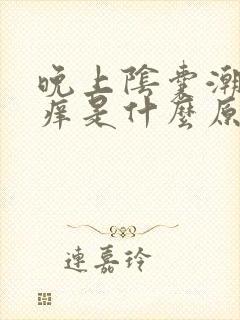 晚上陰囊潮
痒是什麼原
連嘉玲